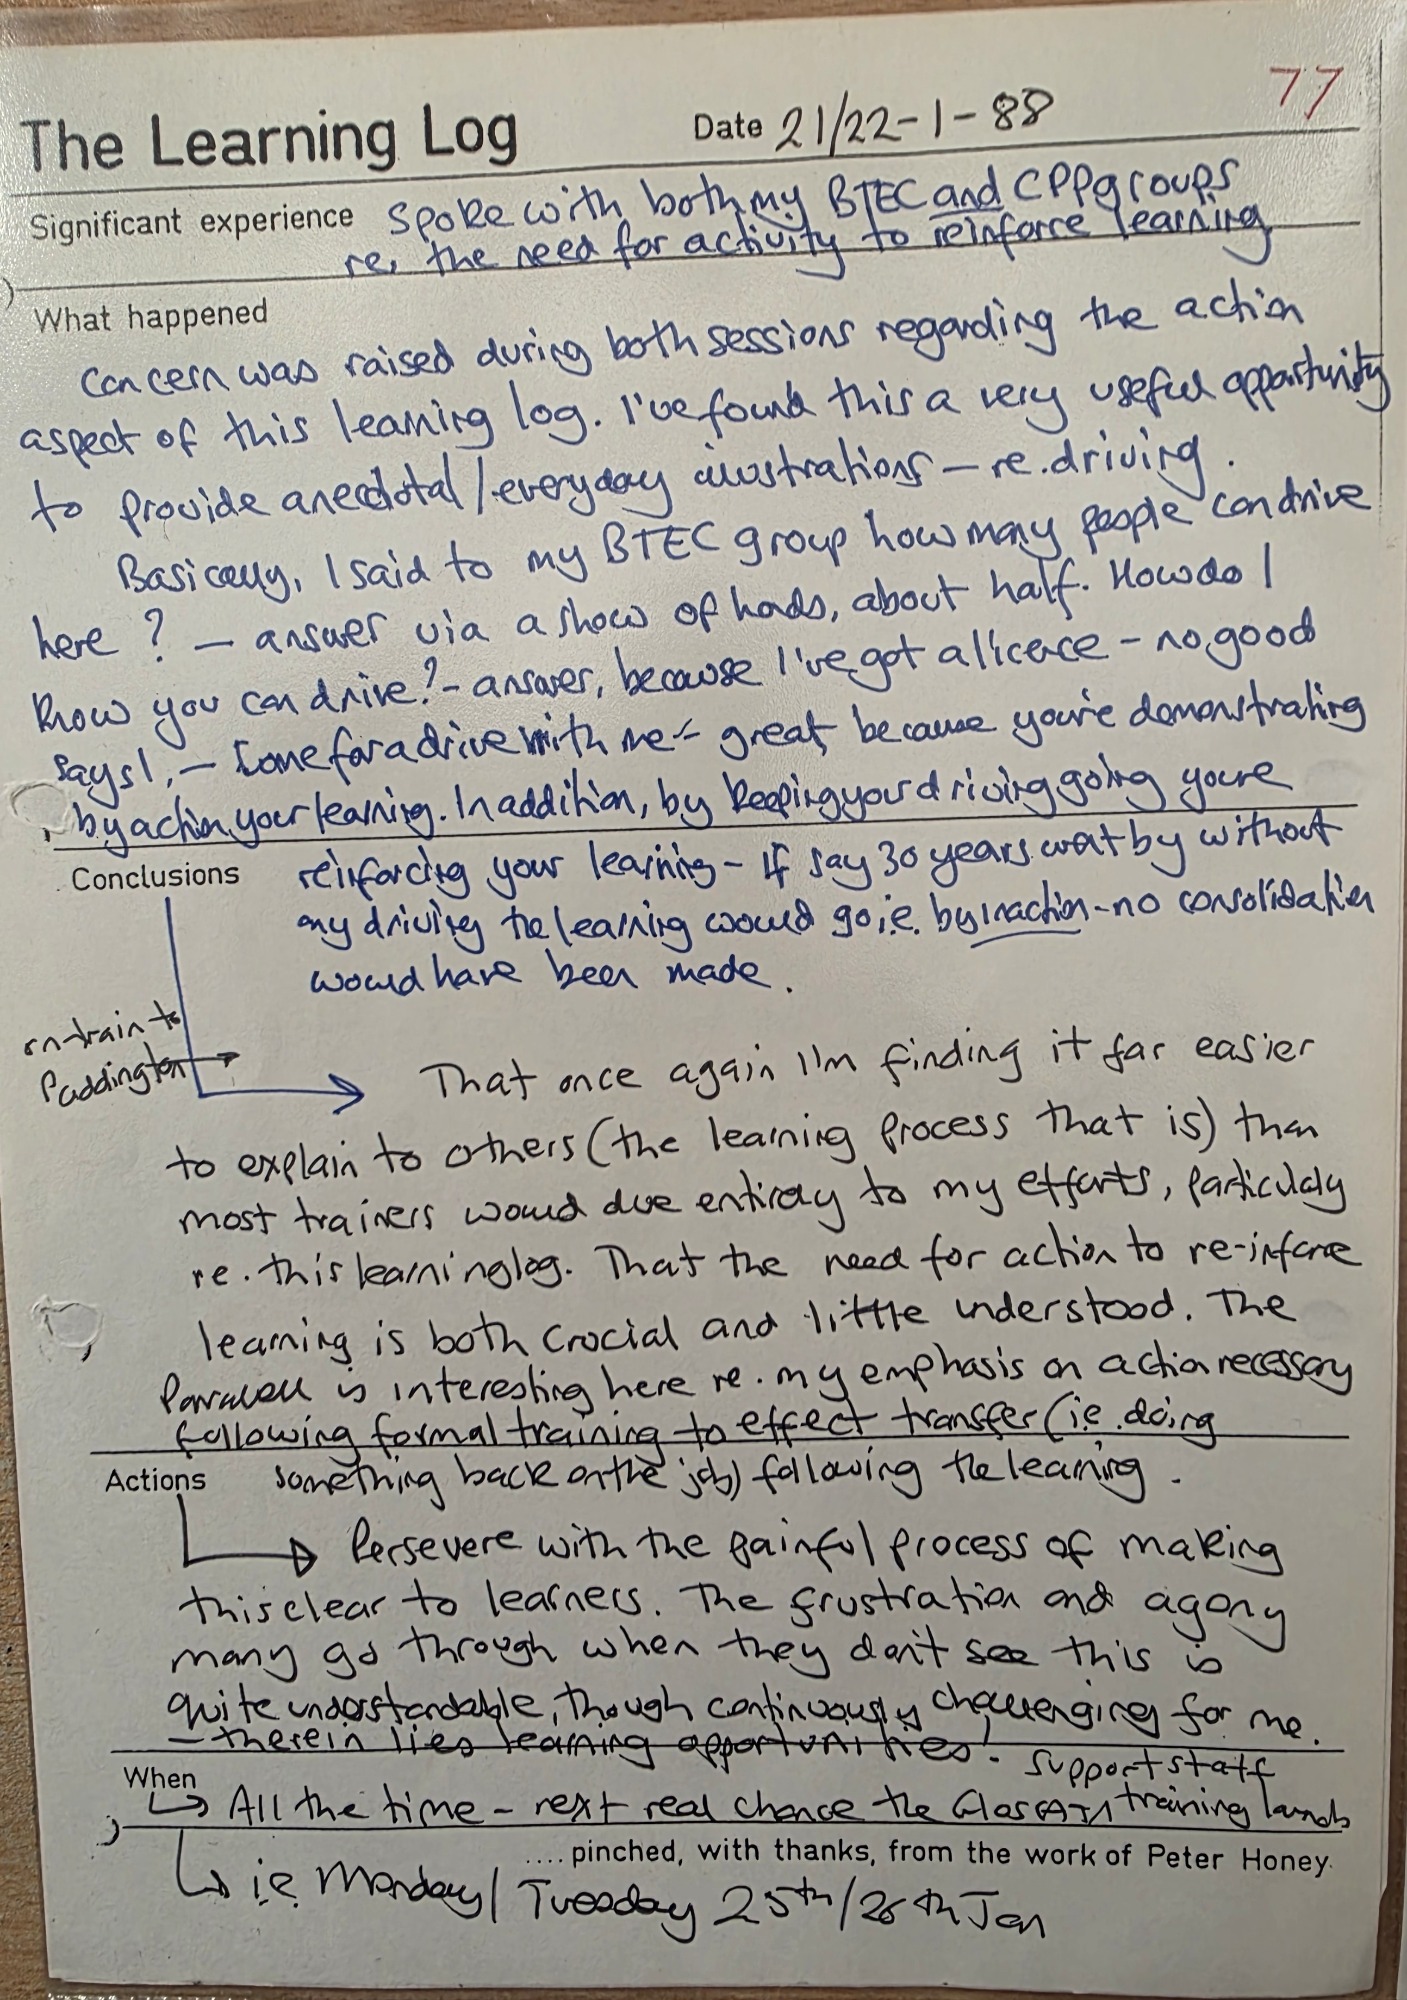 77
The Learning Log Date 21/22-1-88
Significant experience Spoke with both my BTEC and CPP groups
re, the need for activity to reinforce learning
What happened
Concern was raised during both sessions regarding the action
aspect of this learning log. I've found this a very useful opportunity
to provide anecdotal/everyday illustrations – re. driving.
Basically, I said to my BTEC group how many people can drive
here? – answer via a show of hands, about half. How do I
know you can drive? – answer, because I've got a licence – no good
says I, – Come for a drive with me – great because you're demonstrating
by action your learning. In addition, by keeping your driving going you're
Conclusions reinforcing your learning – If say 30 years went by without
any driving the learning would go i.e. by inaction – no consolidation
would have been made.
on train to
Paddington
That once again I'm finding it far easier
to explain to others (the learning process that is) than
most trainers would due entirely to my efforts, particularly
re. this learning log. That the need for action to re-inforce
learning is both crucial and little understood. The
Parallel is interesting here re. my emphasis on action necessary
following formal training to effect transfer (i.e. doing
Actions something back on the job) following the learning.
Persevere with the painful process of making
this clear to learners. The frustration and agony
many go through when they don't see this is
quite understandable, though continuously challenging for me.
– therein lies learning opportunities!
support staff
When All the time – next real chance the training launch
.... pinched, with thanks, from the work of Peter Honey.
i.e Monday/Tuesday 25th/26th Jan